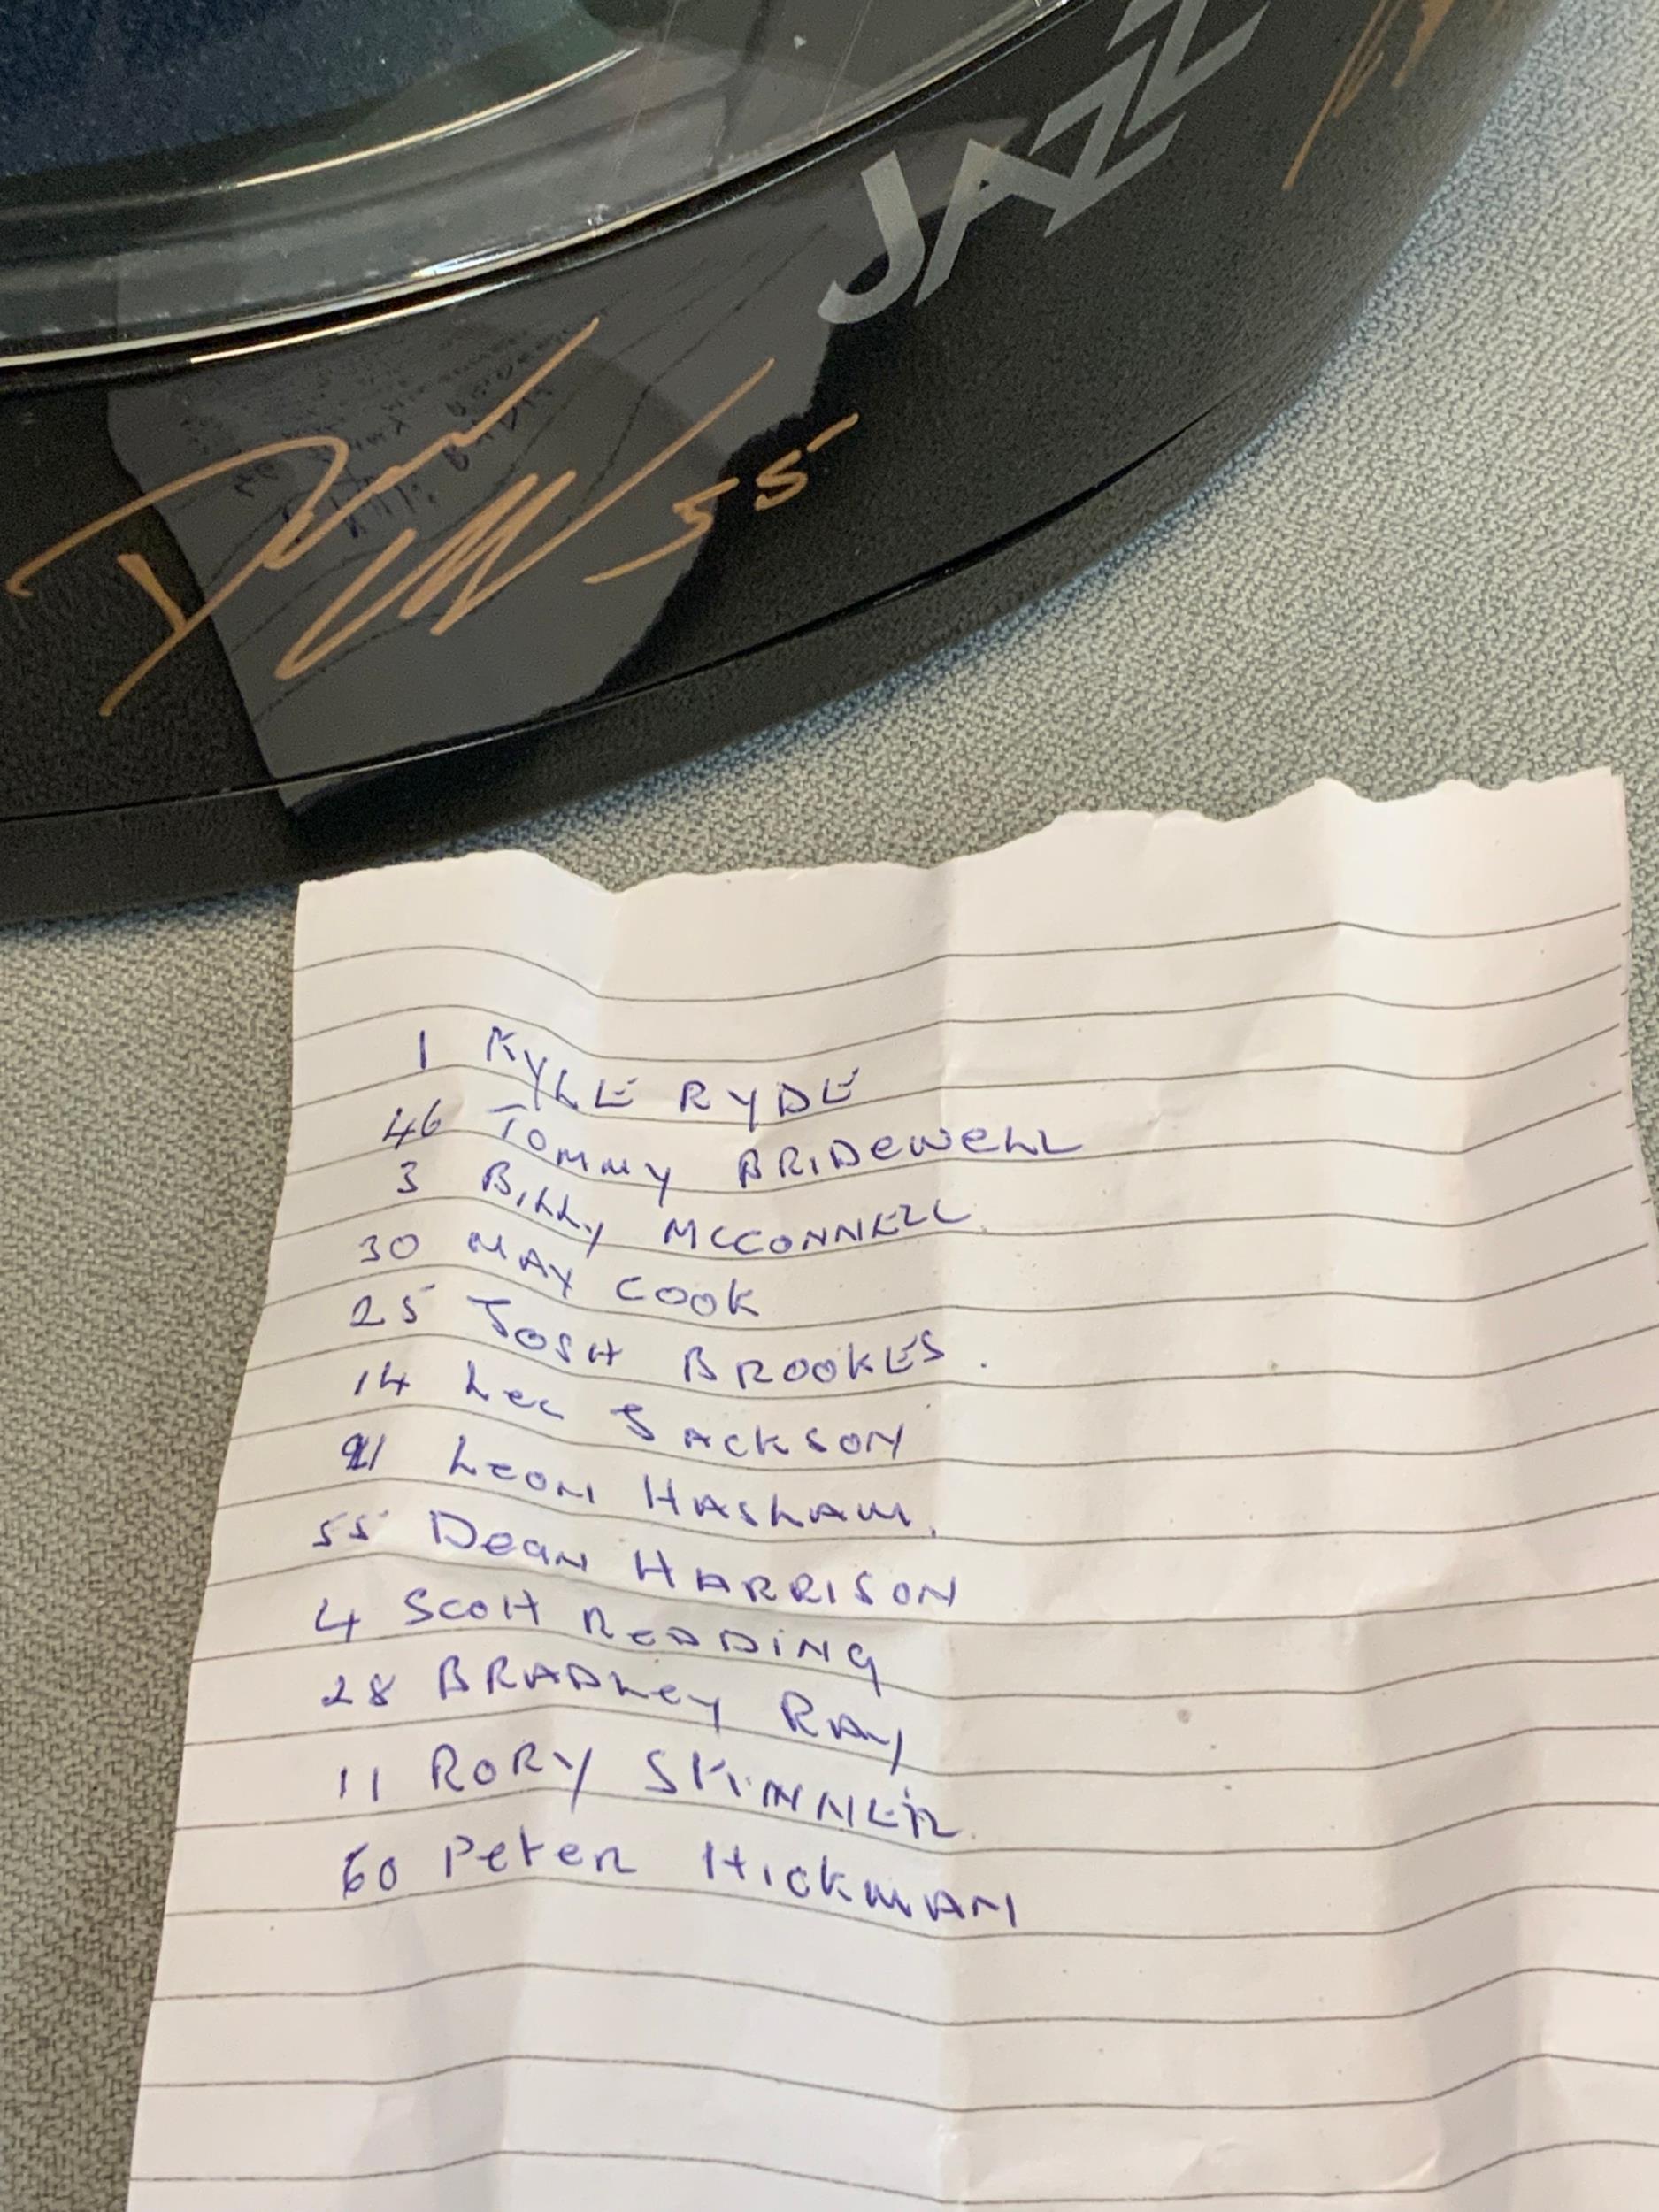 JAZZ
55
1 KYLE RYDE
46 TOMMY BRIDEWELL
3 BILLY MCCONNELL
30 MAX COOK
25 JOSH BROOKES.
14 Lee JACKSON
91 LEON HASLAM.
55 Dean HARRISON
4 SCOtt REDDING
28 BRADLey RAY
11 RORY SKINNER
60 PETER HICKMAN